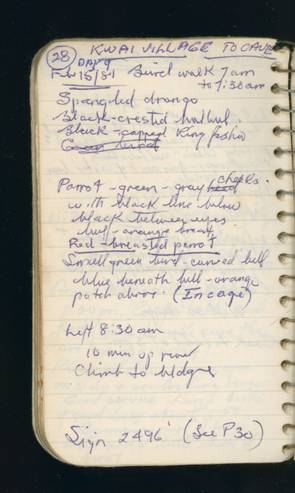 28 KWAI VILLAGE TO CAVE
DAY 9
Feb 15/81 Bird walk 7 am
to 7:30 am
Spangled drongo
Black-crested bulbul
Black-capped Kingfisher
Green
Parrot - green - gray head cheeks.
with black line below
black between eyes
buff-orange break
Red-breasted parrot
Small green bird - curved bill
blue beneath bill - orange
patch above. (In cage)
Left 8:30 am
10 min up river
Climb to bldgs
Sign 2496' (See P30)